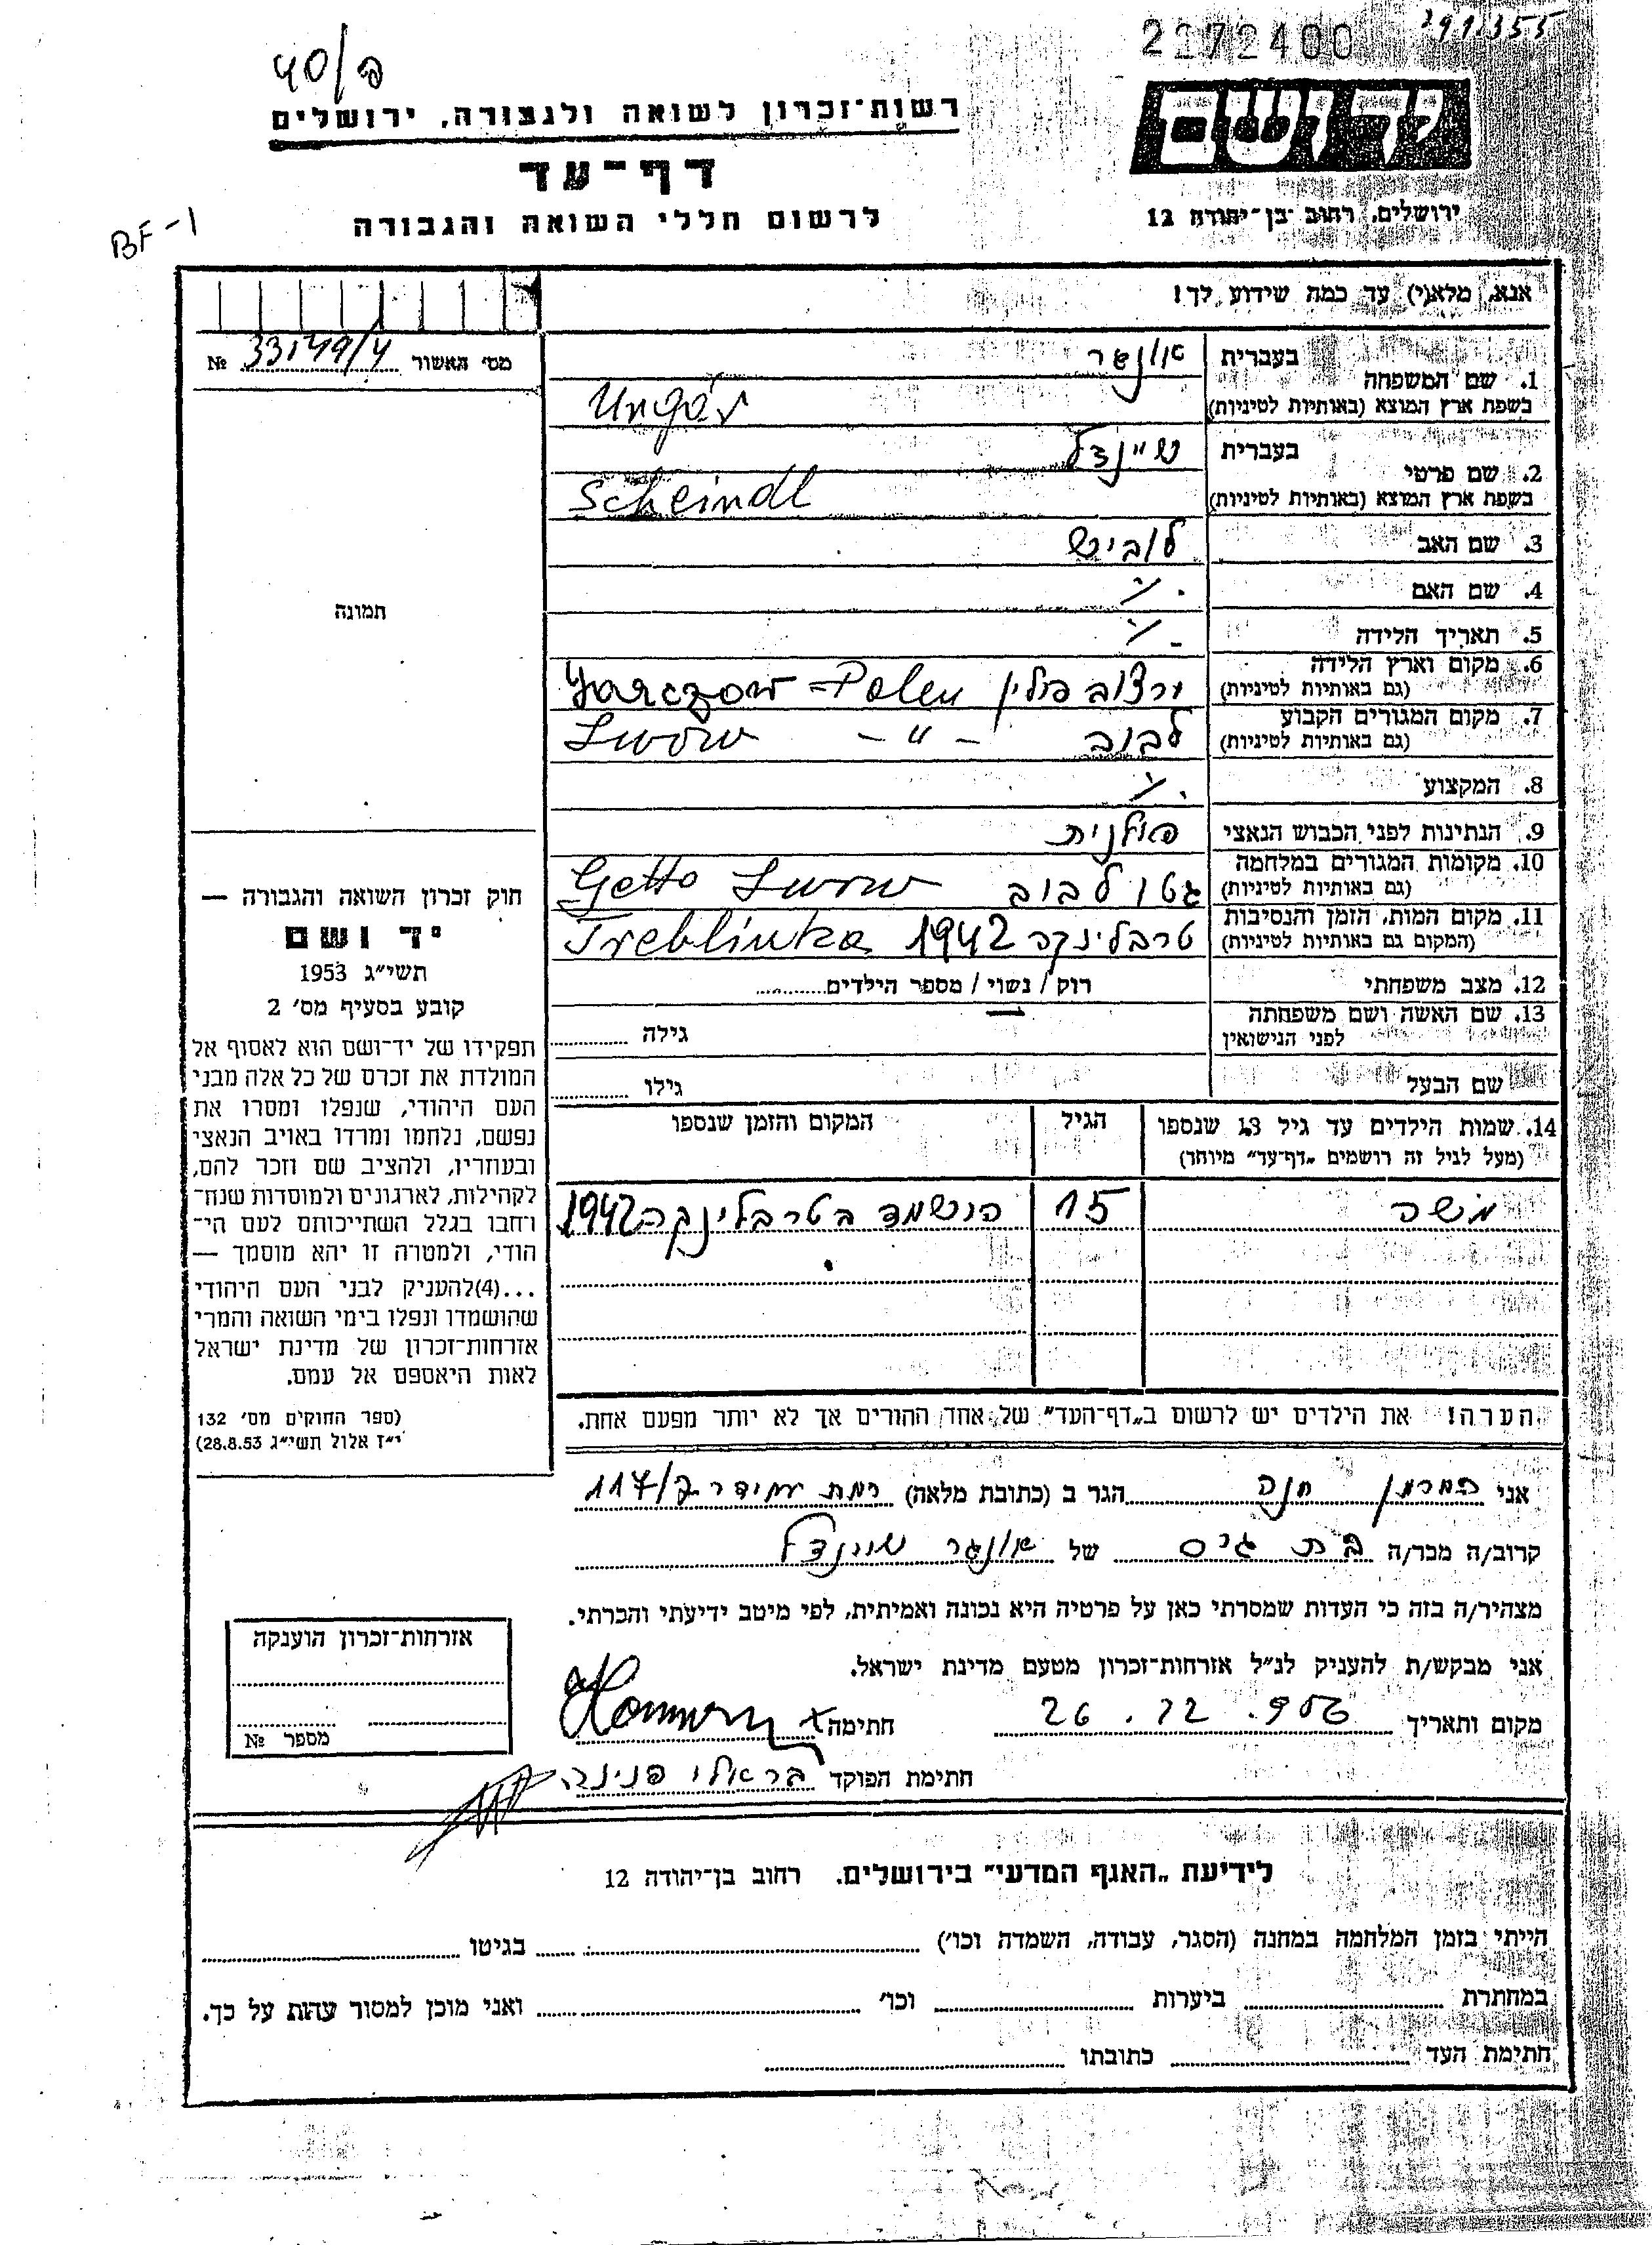 2272400
40/פ
רשות־זכרון לשואה ולגבורה, ירושלים
דף־עד
לרשום חללי השואה והגבורה
ירושלים, רחוב בן־יהודה 12
BF-1
אנא, מלא(י) עד כמה שידוע לך!
מס׳ האשור № 33149/4
1. שם המשפחה
בעברית אונגר
בשפת ארץ המוצא (באותיות לטיניות) Ungár
2. שם פרטי
בעברית שיינדל
בשפת ארץ המוצא (באותיות לטיניות) Scheindl
3. שם האב
4. שם האם ./.
5. תאריך הלידה -/.
6. מקום וארץ הלידה (גם באותיות לטיניות) ירצוב פולין Jarczow - Polen
7. מקום המגורים הקבוע (גם באותיות לטיניות) לבוב Lwow - " -
8. המקצוע ./.
9. הנתינות לפני הכבוש הנאצי פולנית
10. מקומות המגורים במלחמה (גם באותיות לטיניות) גטו לבוב Getto Lwow
11. מקום המות, הזמן והנסיבות (המקום גם באותיות לטיניות) טרבלינקה 1942 Treblinka
12. מצב משפחתי רוק / נשוי / מספר הילדים
13. שם האשה ושם משפחתה לפני הנישואין גילה
שם הבעל גילו
14. שמות הילדים עד גיל 13 שנספו
(מעל לגיל זה רושמים „דף־עד" מיוחד)
הגיל
המקום והזמן שנספו
משה 15 הושמד בטרבלינקה 1942
הערה! את הילדים יש לרשום ב„דף־העד" של אחד ההורים אך לא יותר מפעם אחת.
תמונה
חוק זכרון השואה והגבורה —
יד ושם
תשי״ג 1953
קובע בסעיף מס׳ 2
תפקידו של יד־ושם הוא לאסוף אל
המולדת את זכרם של כל אלה מבני
העם היהודי, שנפלו ומסרו את
נפשם, נלחמו ומרדו באויב הנאצי
ובעוזריו, ולהציב שם וזכר להם,
לקהילות, לארגונים ולמוסדות שנח־
רחבו בגלל השתייכותם לעם הי־
הודי, ולמטרה זו יהא מוסמך —
...(4) להעניק לבני העם היהודי
שהושמדו ונפלו בימי השואה והמרי
אזרחות־זכרון של מדינת ישראל
לאות היאספם אל עמם.
(ספר החוקים מס׳ 132
י״ז אלול תשי״ג 28.8.53)
אני חנה הגר ב (כתובת מלאה) רמת 117/
קרוב/ה מכר/ה בת גיס של אונגר שיינדל
מצהיר/ה בזה כי העדות שמסרתי כאן על פרטיה היא נכונה ואמיתית, לפי מיטב ידיעתי והכרתי.
אני מבקש/ת להעניק לנ״ל אזרחות־זכרון מטעם מדינת ישראל.
מקום ותאריך 26. 12. 956 חתימה
חתימת הפוקד בראלי פנינה
אזרחות־זכרון הוענקה
מספר №
לידיעת „האגף המדעי" בירושלים. רחוב בן־יהודה 12
הייתי בזמן המלחמה במחנה (הסגר, עבודה, השמדה וכו׳) בגיטו
במחתרת ביערות וכו׳ ואני מוכן למסור עדות על כך.
חתימת העד כתובתו